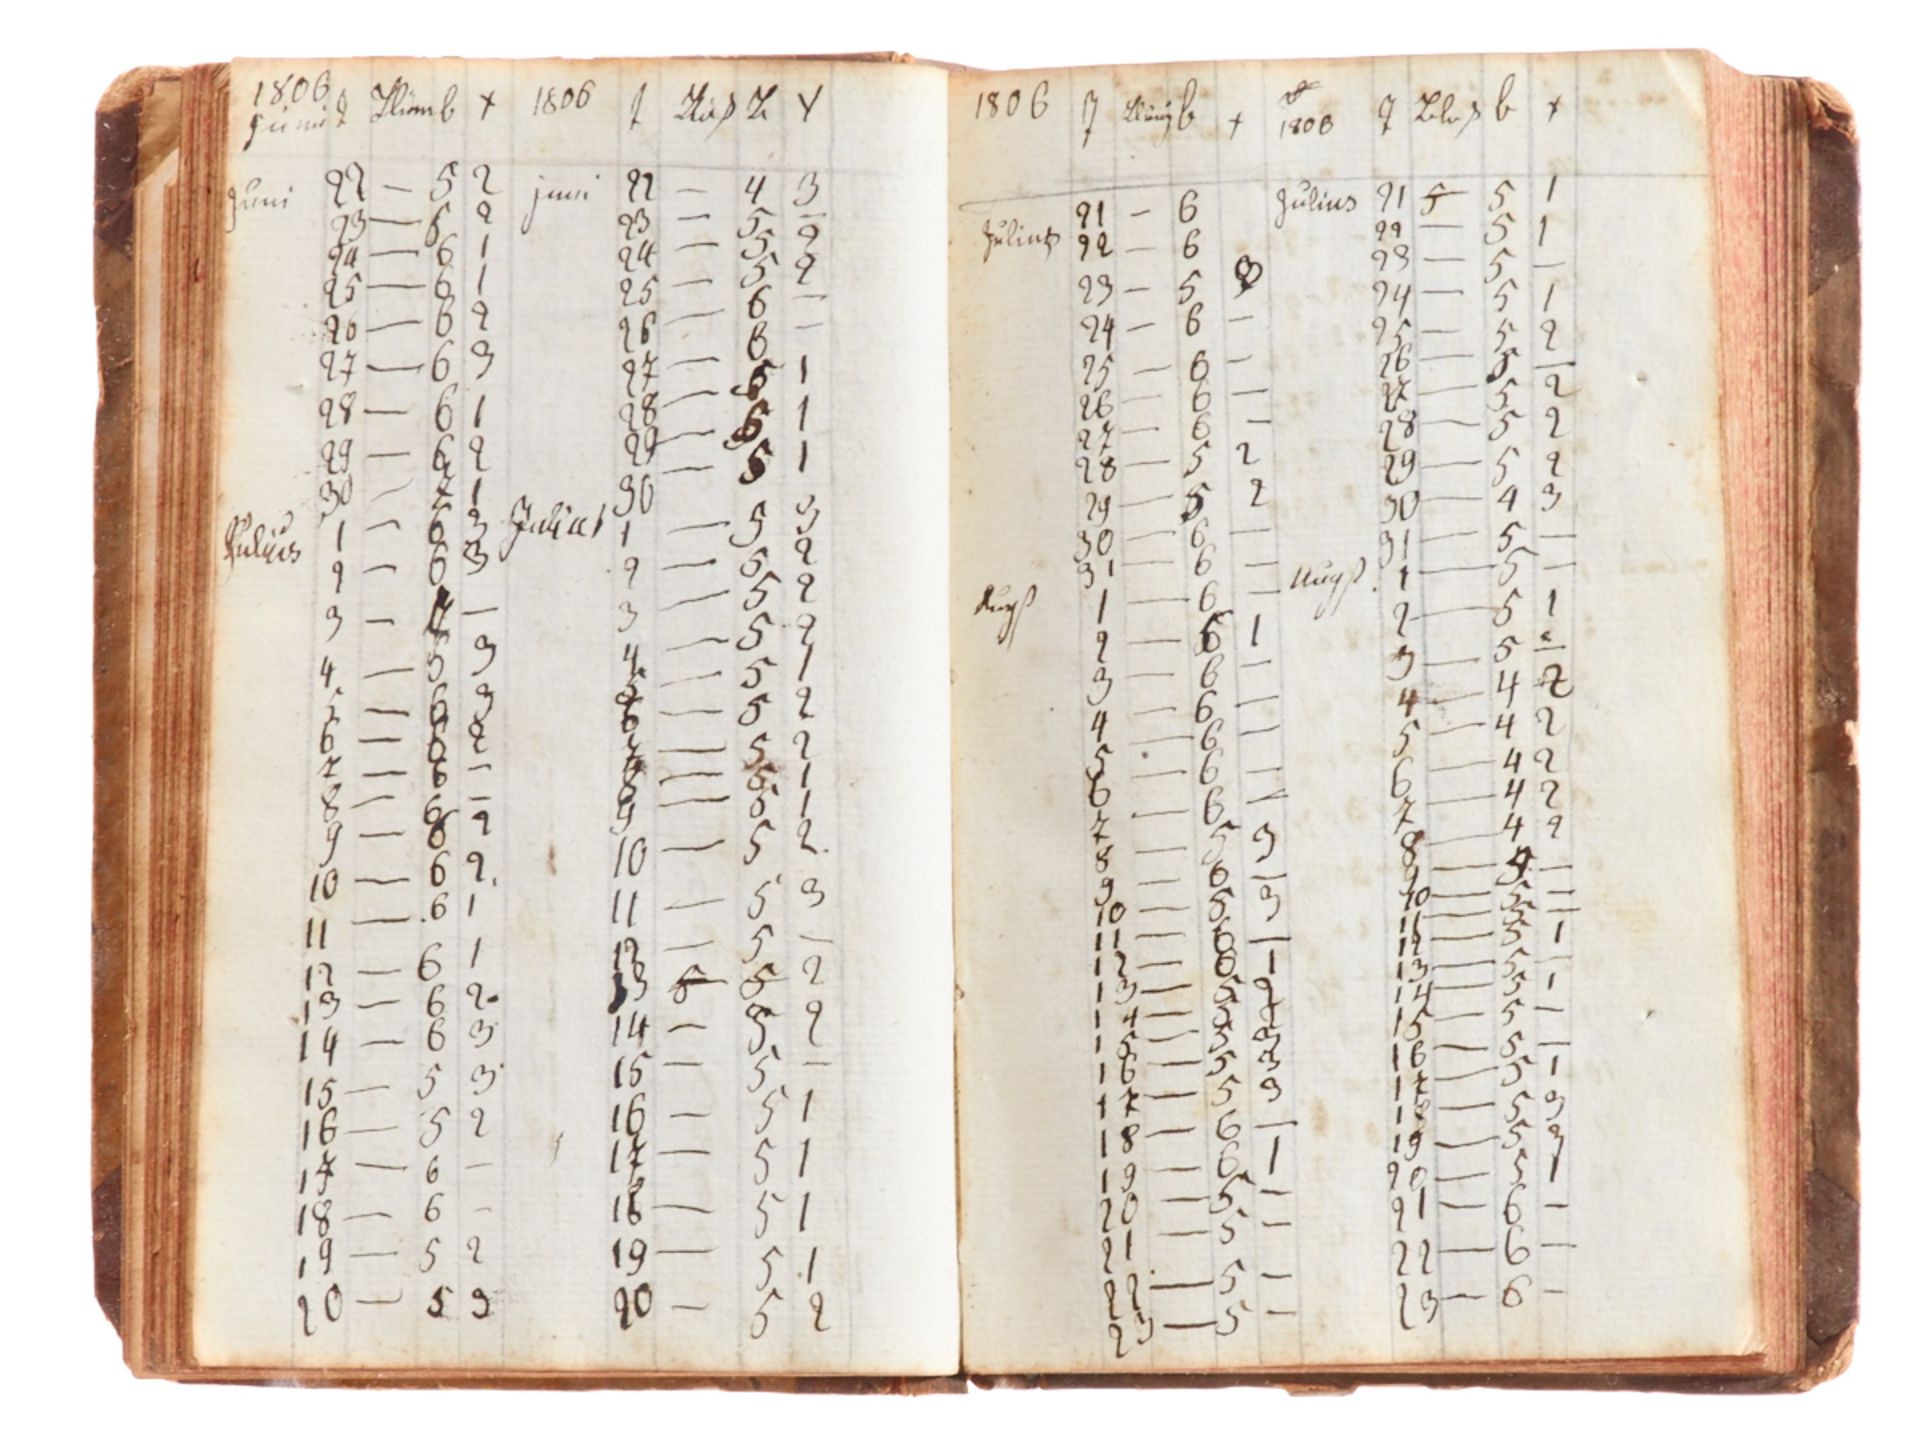 1806 1806
Juni
Juni 22 — 5 2 juni 22 — 4 3
23 — 5 2 23 — 5 —
24 — 6 1 24 — 5 2
25 — 6 1 25 — 5 2
26 — 6 2 26 — 6 —
27 — 6 3 27 — 6 —
28 — 6 1 28 — 5 1
29 — 6 2 29 — 6 1
30 — 7 1 30 — 5 1
Julius 1 — 6 3 Julius 1 — 5 3
2 — 6 3 2 — 5 2
3 — — 3 — 5 2
4 — 5 3 4 — 5 2
5 — 6 3 5 — 5 1
6 — 6 2 6 — 5 2
7 — 6 — 7 — 5 2
8 — 6 — 8 — 6 1
9 — 6 2 9 — 5 1
10 — 6 2 10 — 5 2
11 — 6 1 11 — 5 3
12 — 6 1 12 — 5 —
13 — 6 2 13 5 5 2
14 — 6 3 14 — 5 2
15 — 5 3 15 — 5 —
16 — 5 2 16 — 5 1
17 — 6 — 17 — 5 1
18 — 6 — 18 — 5 1
19 — 5 2 19 — 5 1
20 — 5 3 20 — 5 2
1806 b + 1806 b +
Julius 21 — 6 Julius 21 5 5 1
22 — 6 22 — 5 1
23 — 5 3 23 — 5 —
24 — 6 — 24 — 5 1
25 — 6 — 25 — 5 2
26 — 6 — 26 — 5 —
27 — 6 — 27 — 5 2
28 — 5 2 28 — 5 2
29 — 5 2 29 — 5 2
30 — 6 — 30 — 4 3
31 — 6 — 31 — 5 —
Augst 1 — 6 — Augst 1 — 5 —
2 — 6 1 2 — 5 1
3 — 6 — 3 — 5 —
4 — 6 — 4 — 4 2
5 — 6 — 5 — 4 2
6 — 6 — 6 — 4 2
7 — 6 — 7 — 4 2
8 — 5 3 8 — 4 2
9 — 6 — 9 — —
10 — 5 3 10 — 5 —
11 — 6 — 11 — 5 —
12 — 6 1 12 — 5 1
13 — 5 2 13 — 5 —
14 — 5 14 — 5 1
15 — 5 15 — 5 —
16 — 5 3 16 — 5 —
17 — 5 3 17 — 5 1
18 — 6 — 18 — 5 3
19 — 6 1 19 — 5 3
20 — 5 — 20 — 5 1
21 — 5 — 21 — 6 —
22 — 5 — 22 — 6 —
23 — 5 — 23 — 6 —